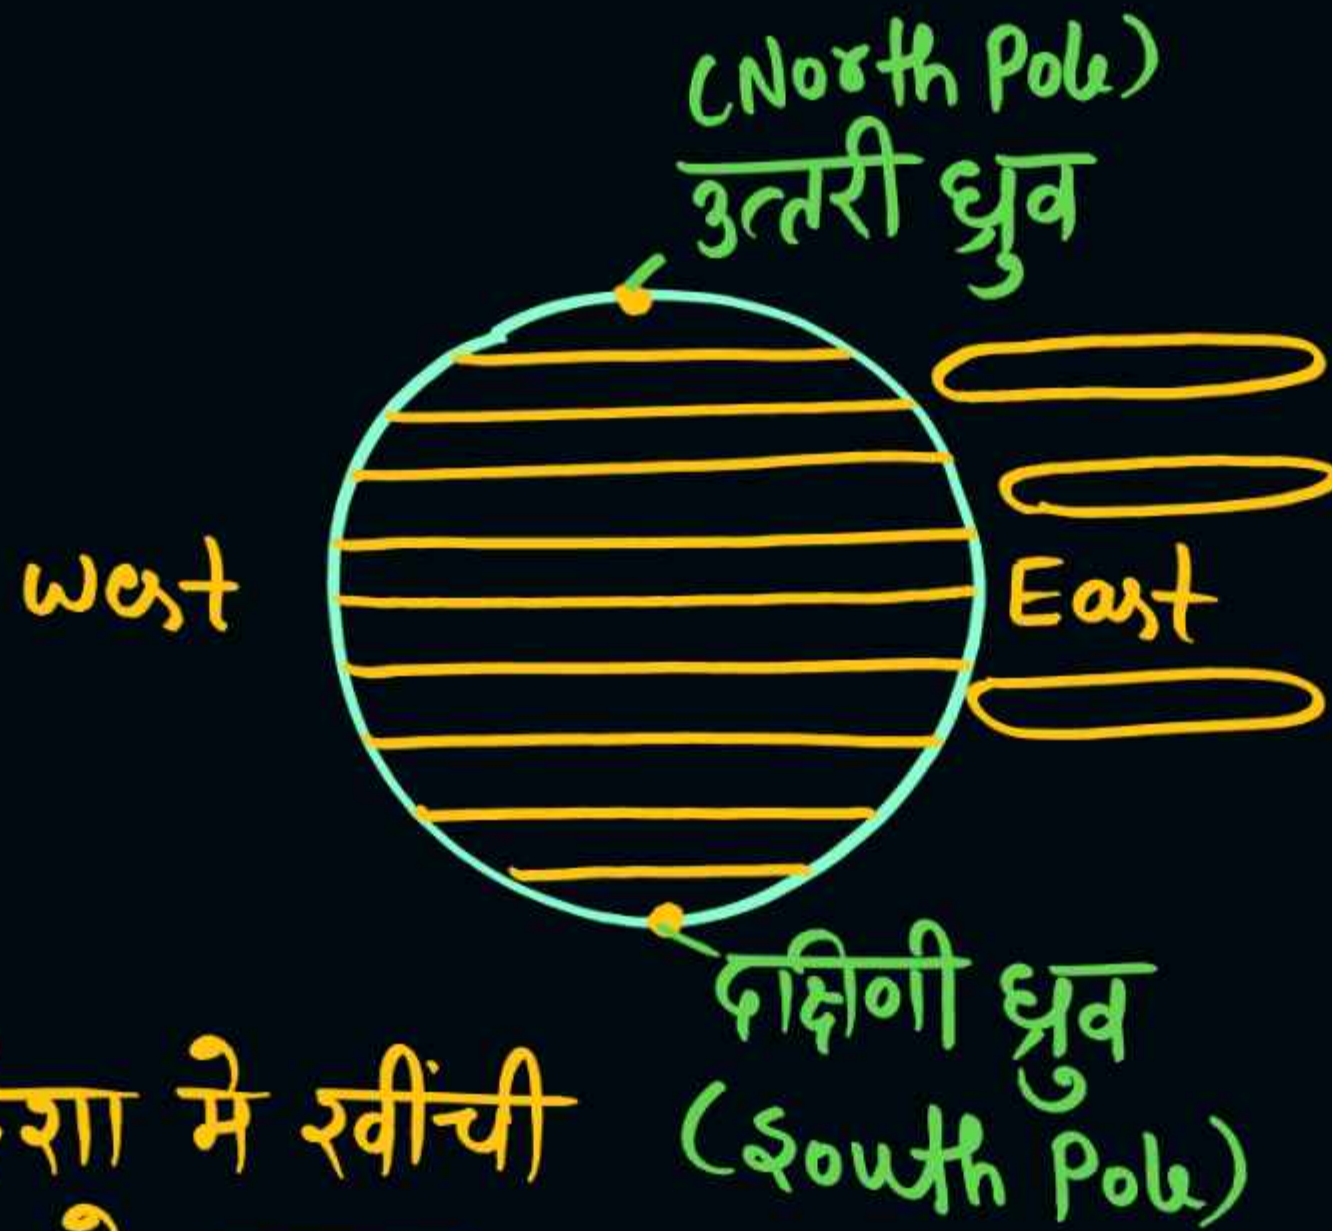 (North Pole)
उत्तरी ध्रुव
West
East
दक्षिणी ध्रुव
(South Pole)
मे खींची